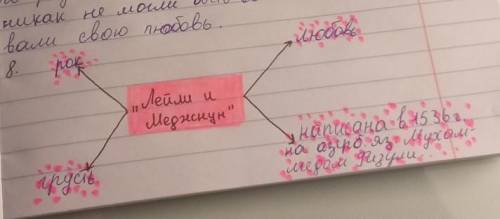 никак не могли быть
вали свою любовь.
8.
рок
любовь
"Лейли и
Меджнун"
написана в 1536 г.
на азерб. яз. Мухам-
медом Физули.
грусть